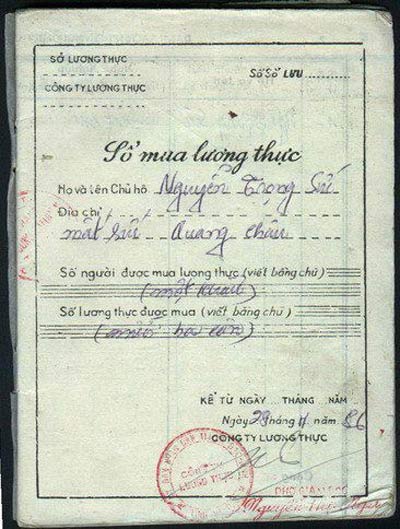 SỞ LƯƠNG THỰC
Sổ Số LƯU
CÔNG TY LƯƠNG THỰC
Sổ mua lương thực
Họ và tên Chủ hộ Nguyễn Trọng
Địa chỉ
Quang Châu
Số người được mua lương thực (viết bằng chữ)
(một khẩu)
Số lương thực được mua (viết bằng chữ)
KỂ TỪ NGÀY THÁNG NĂM
Ngày 28 tháng 11 năm 86
CÔNG TY LƯƠNG THỰC
CÔNG TY
LƯƠNG THỰC
PHÓ GIÁM ĐỐC
Nguyễn